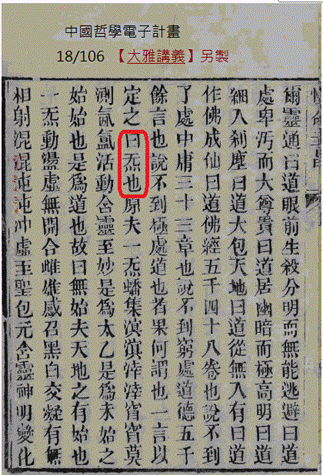 中國哲學電子計畫
18/106 【大雅講義】另製
爾靈通曰道眼前生殺分明而無能逃避曰道
處卑污而大尊貴曰道居幽暗而極高明曰道
細入刹塵曰道大包天地曰道從無入有曰道
作佛成仙曰道佛經五千四十八卷也說不到
了處中庸三十三章也說不到窮處道德五千
餘言也說不到極處道也者果何謂也一言以
定之曰炁也原夫一炁蟠集溟溟涬涬窅窅莫
測氤氳活動含靈至妙是為太乙是為未始之
始始也是為道也故曰無始夫天地之有始也
一炁動盪虛無開合雌雄感召黑白交凝有無
相射混混沌沌冲虛至聖包元含靈神明變化